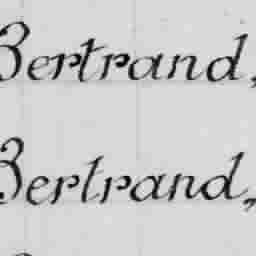 Bertrand,
Bertrand,,